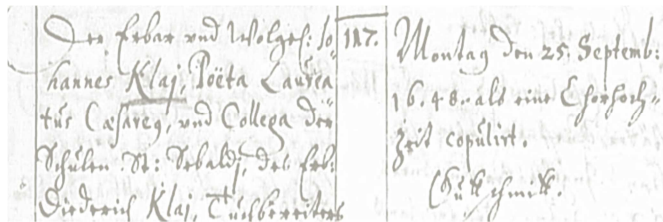 Der Erbar vnd Wolgel: Jo-
hannes Klaj, Poëta Laurea
tus Cæsareus, vnd Collega der
Schulen St: Sebaldj, des Erb:
Diederich Klaj, Tuchbereiters
117.
Montag den 25. Septemb:
1648. als eine Chorhoch-
zeit copulirt.